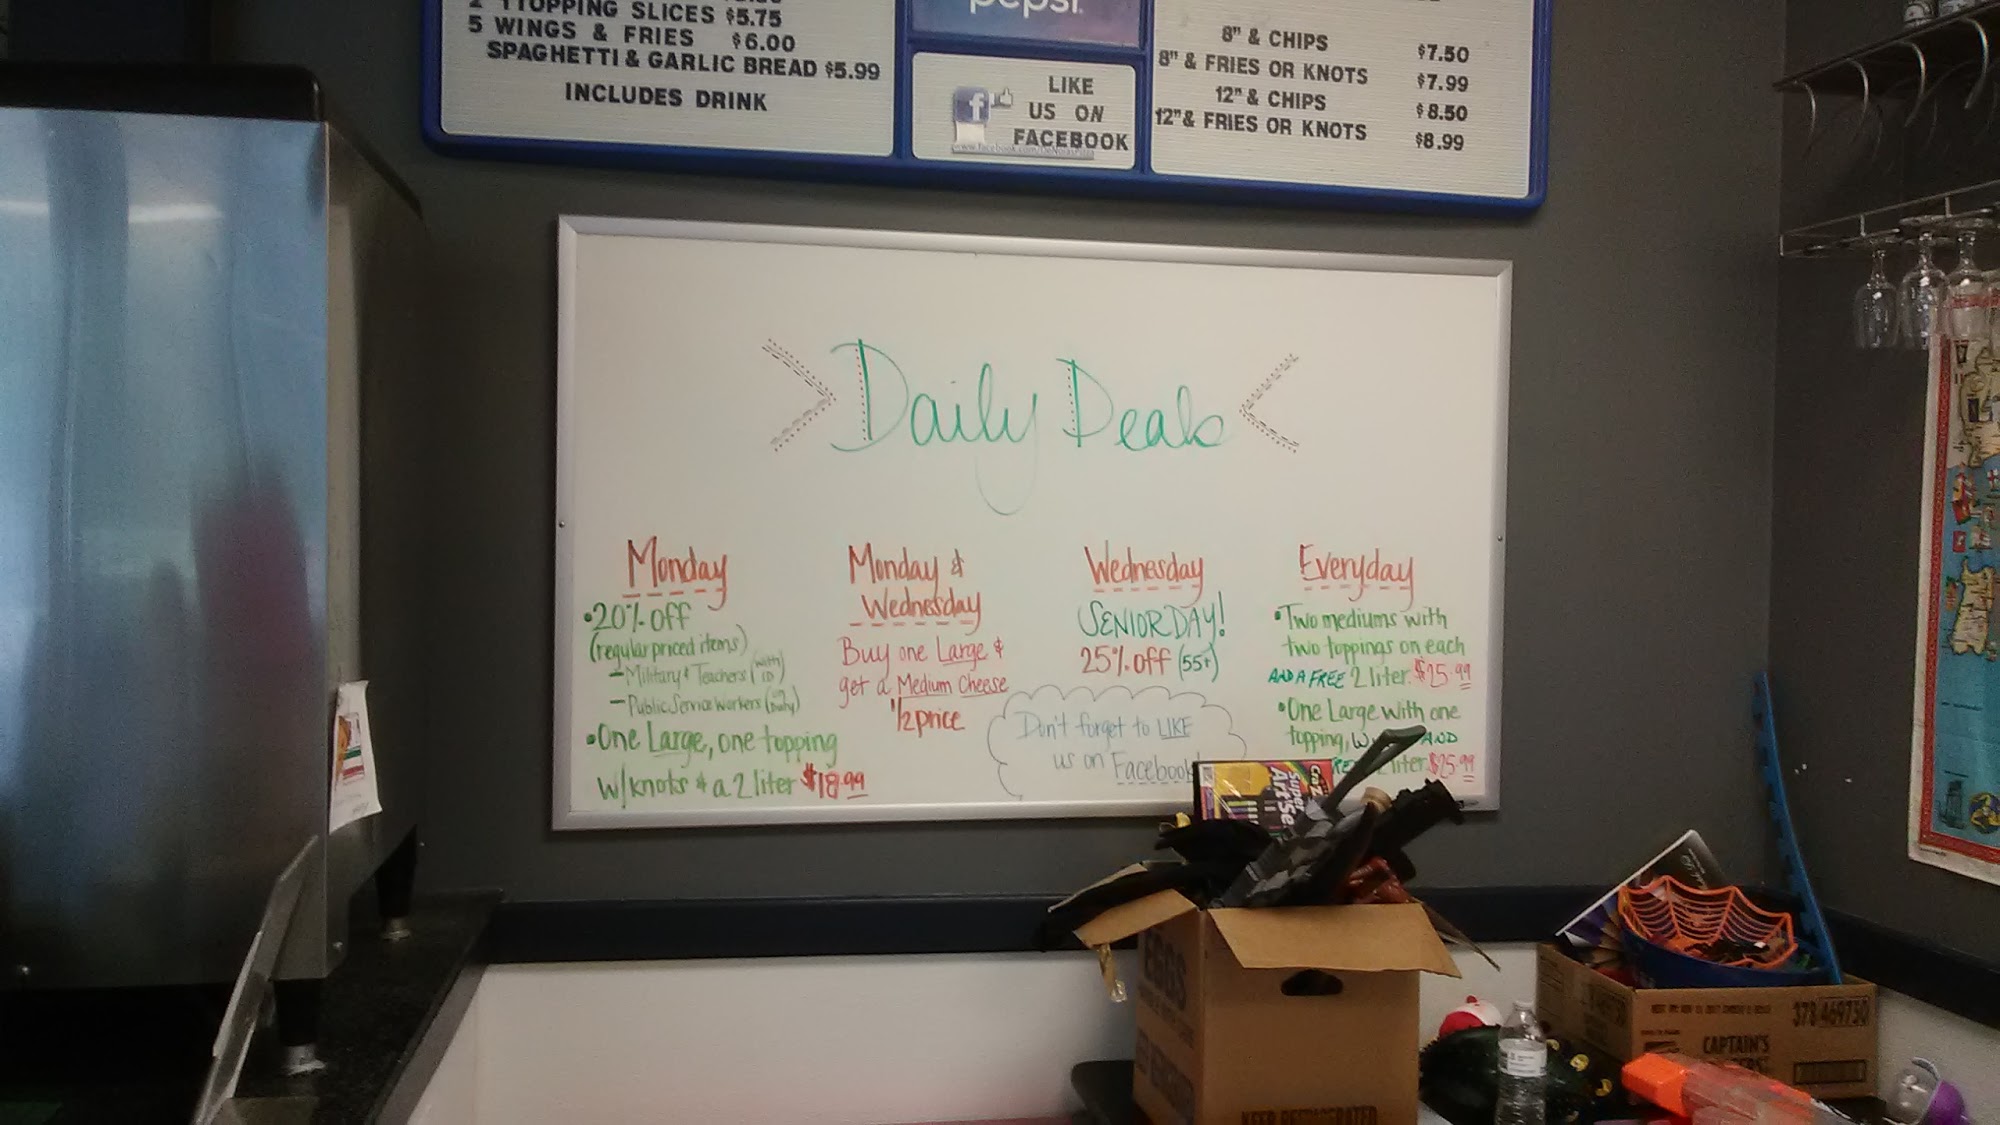 1 TOPPING SLICES $5.75
5 WINGS & FRIES $6.00
SPAGHETTI & GARLIC BREAD $5.99
INCLUDES DRINK
pepsi
LIKE
US ON
FACEBOOK
8" & CHIPS $7.50
8" & FRIES OR KNOTS $7.99
12" & CHIPS $8.50
12" & FRIES OR KNOTS $8.99
Daily Deals
Monday
•20% off
(regular priced items)
- Military & Teachers (with ID)
- Public Service Workers
•One Large, one topping
w/knots & a 2 liter $18.99
Monday &
Wednesday
Buy one Large &
get a Medium Cheese
1/2 price
Wednesday
SENIOR DAY!
25% off (55+)
Don't forget to LIKE
us on Facebook
Everyday
•Two mediums with
two toppings on each
AND A FREE 2 liter. $25.99
•One Large with one
topping, AND
2 liter $25.99
Super
Art Se
EGGS
KEEP REFRIGERATED
378 469730
CAPTAIN'S